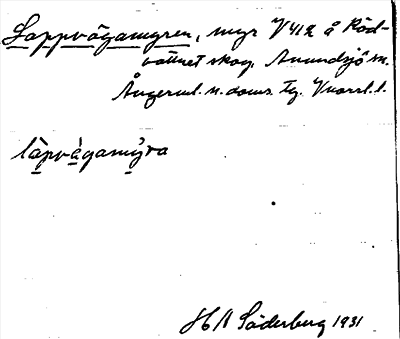 Lappvägamyren, myr V 412 å Röd-
vattnet skog, Anundsjö sn.
Ångerml. n. doms. tg. Vnorrl. l.
làpvàgamy̍ra
H A Söderberg 1931